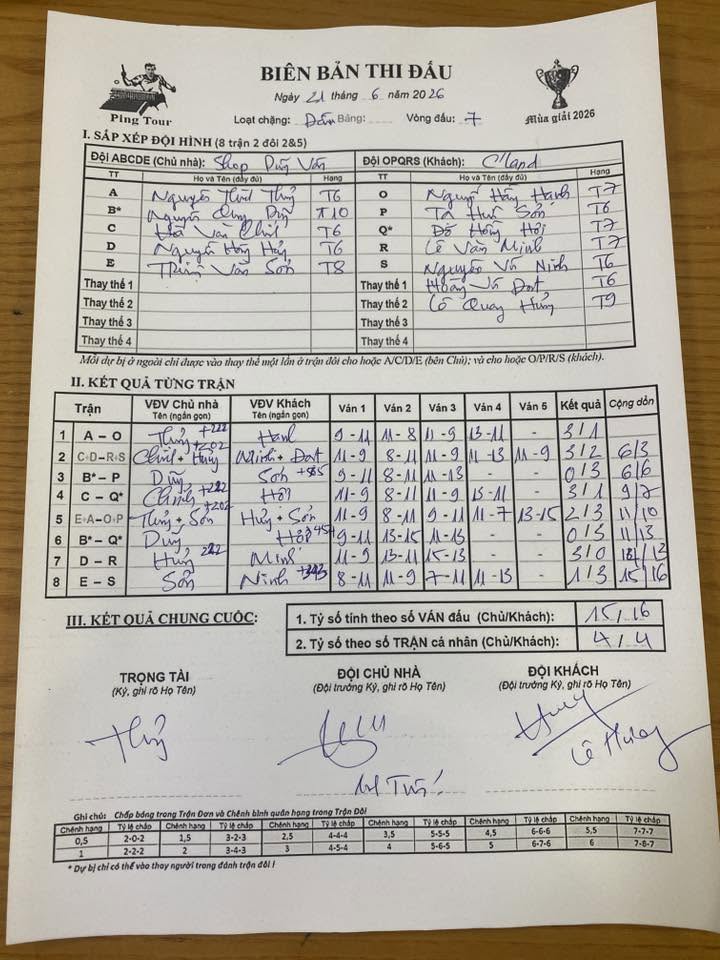 BIÊN BẢN THI ĐẤU
Ping Tour
Ngày 21 tháng 6 năm 2026
Loại chặng: Bảng: Vòng đấu: 7
Mùa giải 2026
I. SẮP XẾP ĐỘI HÌNH (8 trận 2 đôi 2&5)
Đội ABCDE (Chủ nhà): Shop Duy Vân Đội OPQRS (Khách): C'land
TT Họ và Tên (đầy đủ) Hạng TT Họ và Tên (đầy đủ) Hạng
A Nguyễn Thủy T6 O Nguyễn Hạnh T7
B* Nguyễn Quang Duy T10 P Tạ Sơn T6
C Văn Chinh T6 Q* Đỗ Hồng T7
D Nguyễn Hồng T6 R Lê Văn Minh T7
E Văn Sơn T8 S Nguyễn Vũ Ninh T6
Thay thế 1 Thay thế 1 Hoàng Vũ Đạt T6
Thay thế 2 Thay thế 2 Lê Quang Hưng T9
Thay thế 3 Thay thế 3
Thay thế 4 Thay thế 4
Mỗi dự bị ở ngoài chỉ được vào thay thế một lần ở trận đôi cho hoặc A/C/D/E (bên Chủ); và cho hoặc O/P/R/S (khách).
II. KẾT QUẢ TỪNG TRẬN
Trận VĐV Chủ nhà Tên (ngắn gọn) VĐV Khách Tên (ngắn gọn) Ván 1 Ván 2 Ván 3 Ván 4 Ván 5 Kết quả Cộng dồn
1 A – O Thủy +222 Hạnh 9-11 11-8 11-9 13-11 - 3/1
2 C+D–R+S Chinh + +202 Minh + Đạt 11-9 8-11 11-9 11-13 11-9 3/2 6/3
3 B* – P Duy Sơn 9-11 8-11 11-13 - - 0/3 6/6
4 C – Q* Chinh +222 11-9 8-11 11-9 13-11 - 3/1 9/7
5 E+A–O+P Thủy + Sơn +202 + Sơn 11-9 8-11 9-11 11-7 13-15 2/3 11/10
6 B* – Q* Duy 9-11 13-15 11-13 - - 0/3 11/13
7 D – R 222 Minh 11-9 13-11 15-13 - - 3/0 /13
8 E – S Sơn Ninh 8-11 11-9 7-11 11-13 - 1/3 15/16
III. KẾT QUẢ CHUNG CUỘC:
1. Tỷ số tính theo số VÁN đấu (Chủ/Khách): 15/16
2. Tỷ số theo số TRẬN cá nhân (Chủ/Khách): 4/4
TRỌNG TÀI ĐỘI CHỦ NHÀ ĐỘI KHÁCH
(Ký, ghi rõ Họ Tên) (Đội trưởng Ký, ghi rõ Họ Tên) (Đội trưởng Ký, ghi rõ Họ Tên)
Thủy
Ghi chú: Chấp bóng trong Trận Đơn và Chênh bình quân hạng trong Trận Đôi
Chênh hạng Tỷ lệ chấp Chênh hạng Tỷ lệ chấp Chênh hạng Tỷ lệ chấp Chênh hạng Tỷ lệ chấp Chênh hạng Tỷ lệ chấp Chênh hạng Tỷ lệ chấp
0,5 2-0-2 1,5 3-2-3 2,5 4-4-4 3,5 5-5-5 4,5 6-6-6 5,5 7-7-7
1 2-2-2 2 3-4-3 3 4-5-4 4 5-6-5 5 6-7-6 6 7-8-7
* Dự bị chỉ có thể vào thay người trong đánh trận đôi !